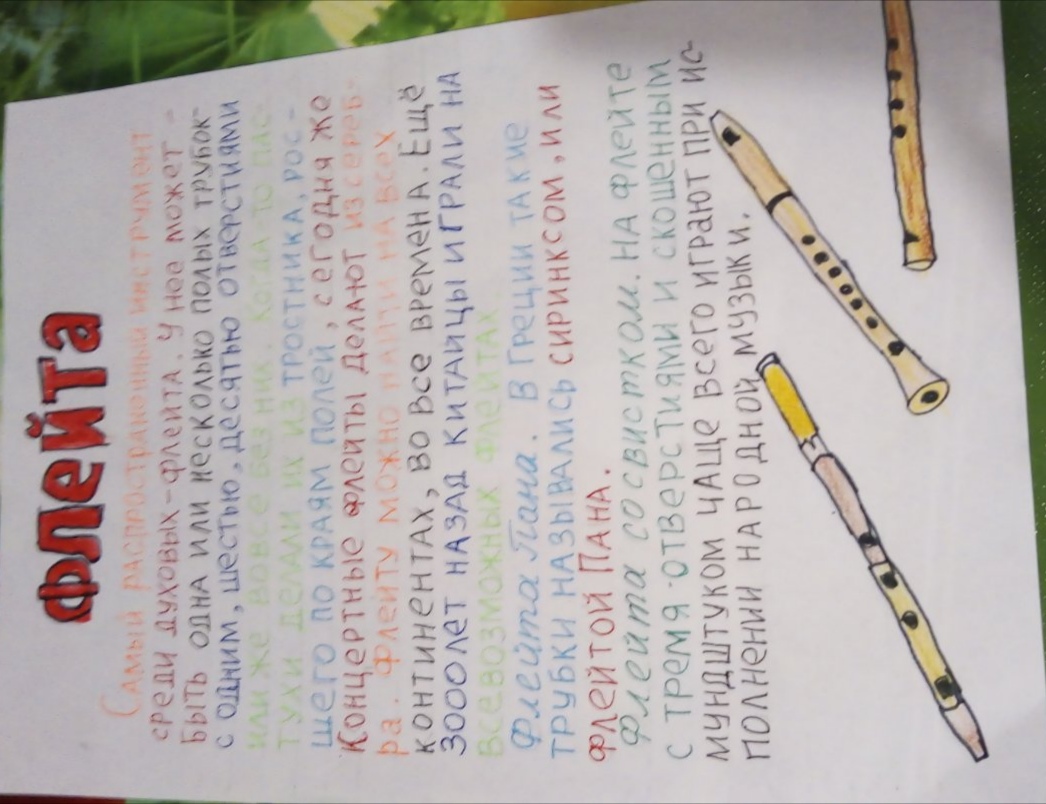 Флейта
Самый распространённый инструмент
среди духовых-флейта. У нее может -
быть одна или несколько полых трубок-
с одним, шестью, десятью отверстиями
или же вовсе без них. Когда-то пас-
тухи делали их из тростника, рос-
шего по краям полей, сегодня же
Концертные флейты делают из сереб-
ра. Флейту можно найти на всех
континентах, во все времена. Ещё
3000лет назад китайцы играли на
всевозможных флейтах.
Флейта Пана. В Греции такие
трубки назывались сиринксом, или
флейтой Пана.
Флейта со свистком. На флейте
с тремя отверстиями и скошенным
мундштуком чаще всего играют при ис-
полнении народной музыки.